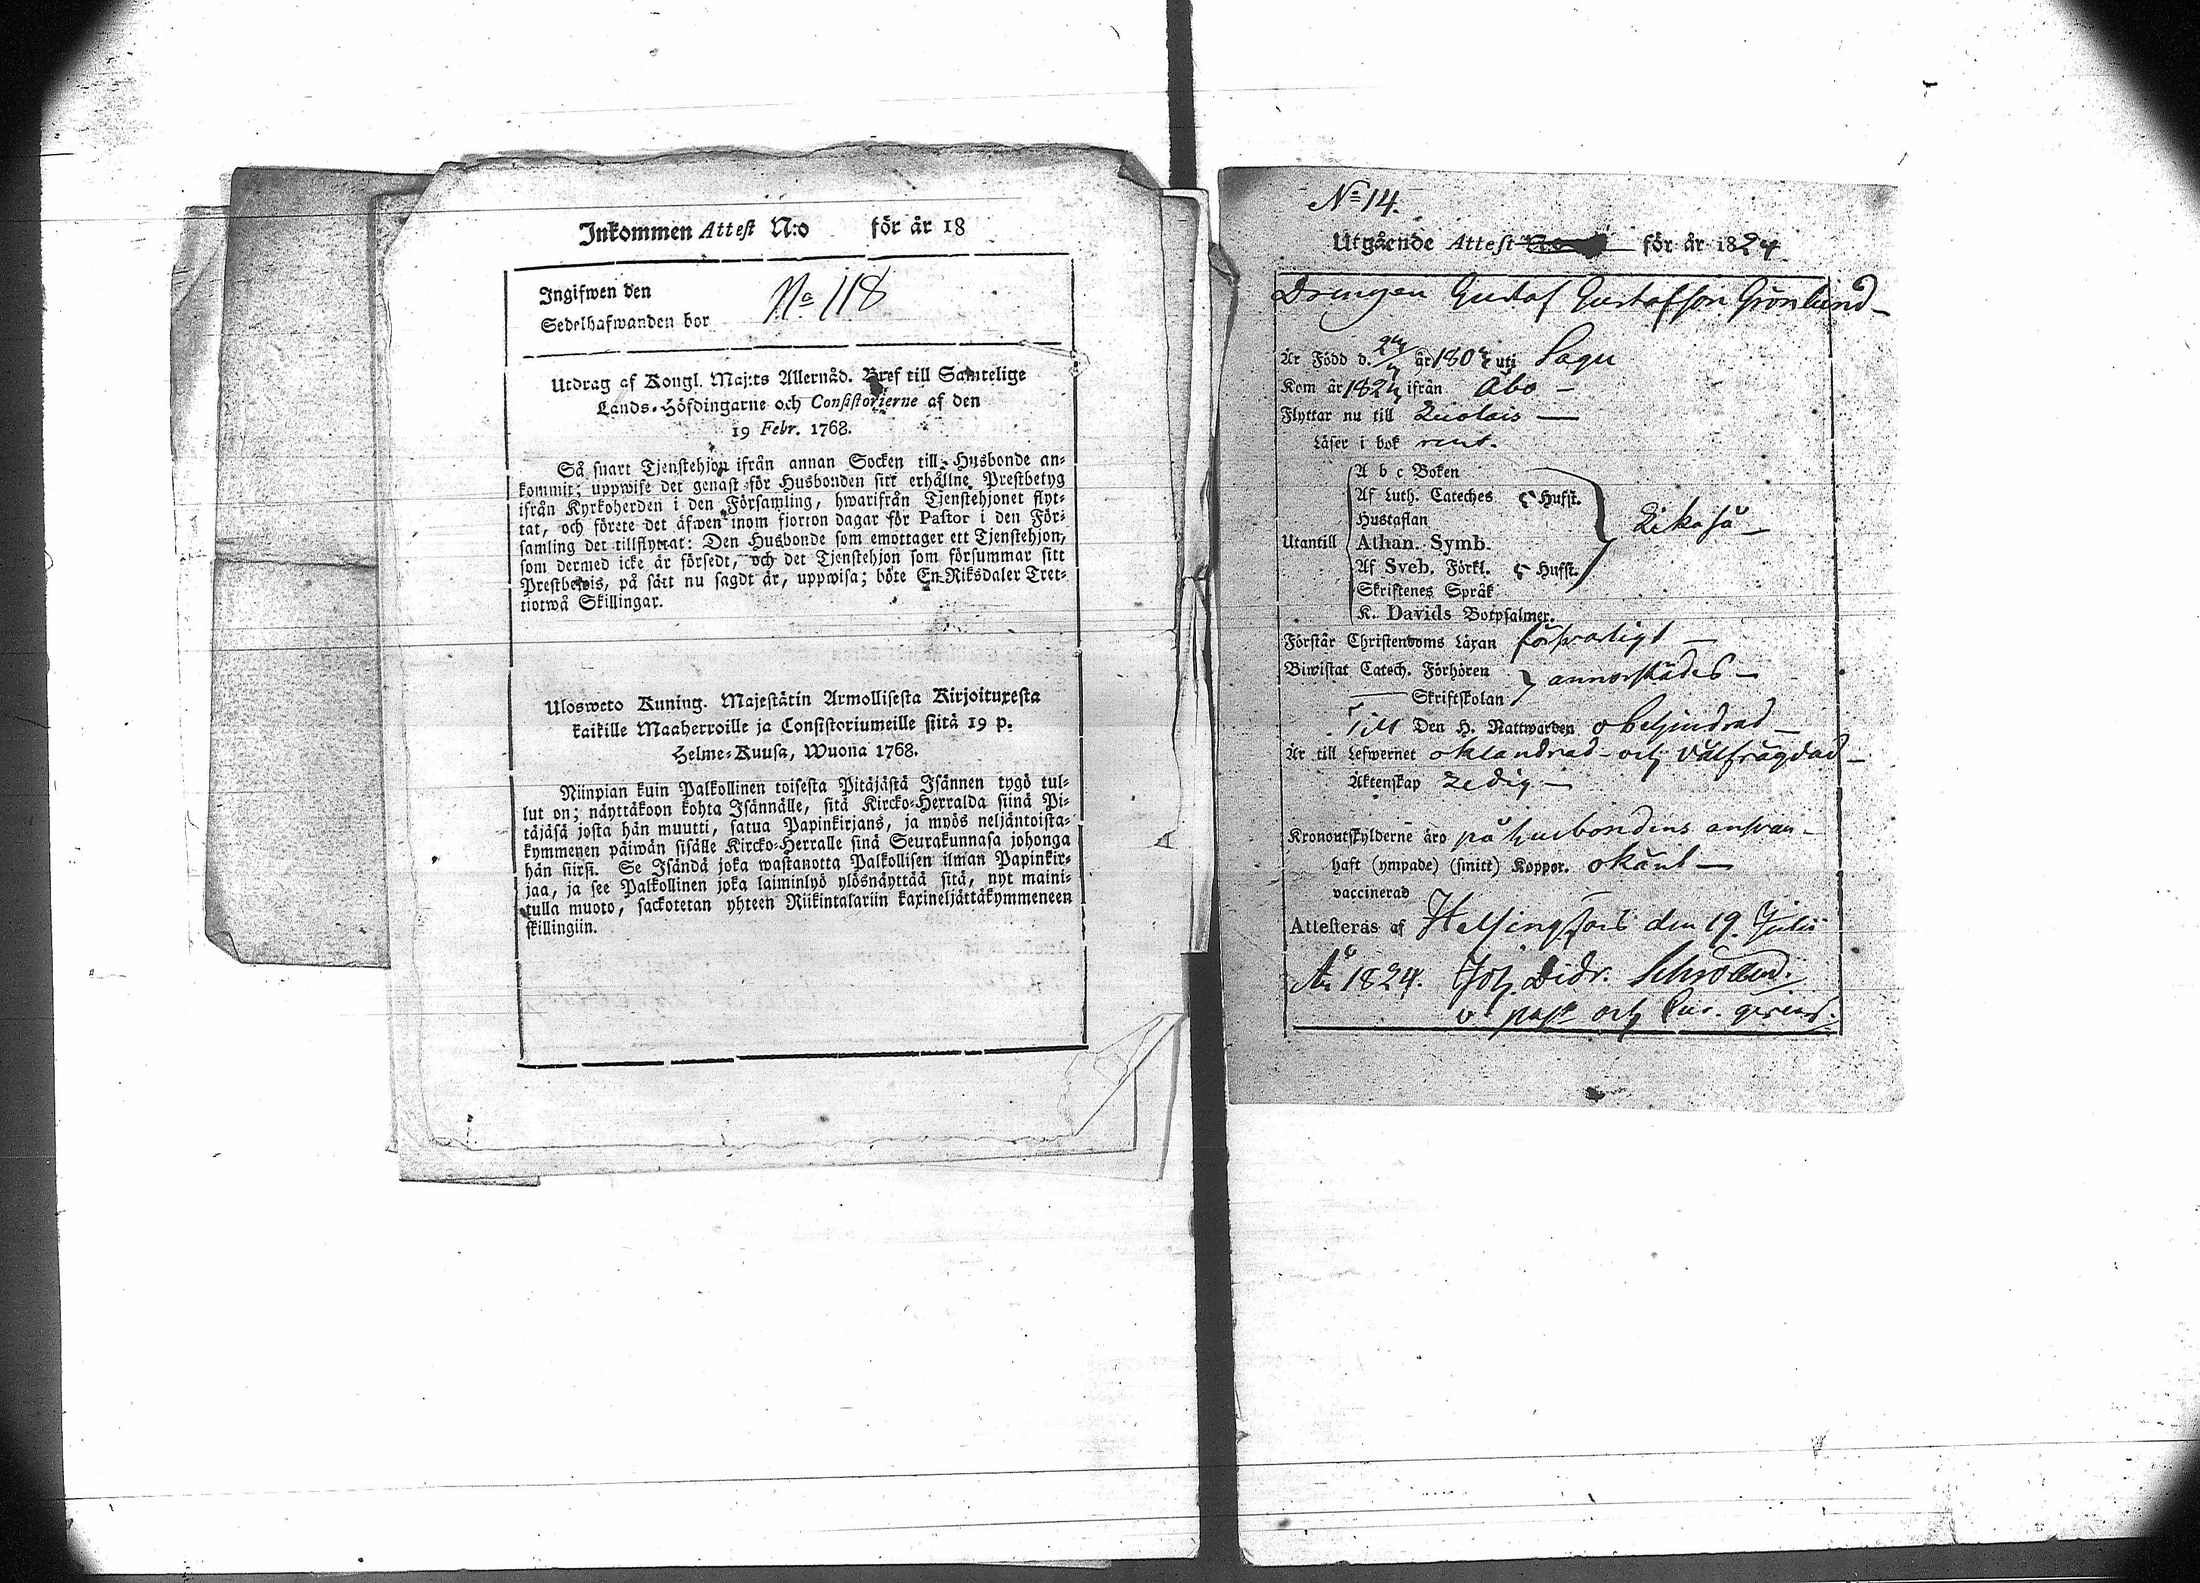 Inkommen Attest N:o för år 18
Ingifwen den
Sedelhafwanden bor
No 118
Utdrag af Kongl. Maj:ts Allernåd. Bref till Samtelige
Lands-Höfdingarne och Consistorierne af den
19 Febr. 1768.
Så snart Tjenstehjon ifrån annan Socken till Husbonde an-
kommit; uppwise det genast för Husbonden sitt erhållne Prestbetyg
ifrån Kyrkoherden i den Församling, hwarifrån Tjenstehjonet flyt-
tat, och förete det äfwen inom fjorton dagar för Pastor i den För-
samling det tillflyttat: Den Husbonde som emottager ett Tjenstehjon,
som dermed icke är försedt, och det Tjenstehjon som försummar sitt
Prestbewis, på sätt nu sagdt är, uppwisa; böte En Riksdaler Tret-
tiotwå Skillingar.
Ulosweto Kuning. Majestätin Armollisesta Kirjoituxesta
kaikille Maaherroille ja Consistoriumeille siitä 19 p.
Helme-Kuusa, Wuona 1768.
Niinpian kuin Palkollinen toisesta Pitäjästä Isännen tygö tul-
lut on; näyttäkoon kohta Isännälle, sitä Kircko-Herralda siinä Pi-
täjäsä josta hän muutti, satua Papinkirjans, ja myös neljäntoista-
kymmenen päiwän sisälle Kircko-Herralle sinä Seurakunnasa johonga
hän siirsi. Se Isändä joka wastanotta Palkollisen ilman Papinkir-
jaa, ja see Palkollinen joka laiminlyö ylösnäyttää sitä, nyt maini-
tulla muoto, sackotetan yhteen Riikintalariin kaxineljättäkymmeneen
skillingiin.
No 14.
Utgående Attest för år 1824
Drengen Gustaf Gustafson Grönlund
Är Född d. år 180 uti Pagu
Kom år 1824 ifrån Åbo
Flyttar nu till
Läser i bok rent.
A b c Boken
Af Luth. Cateches 5 Hufst.
Hustaflan
Utantill Athan. Symb. Lika så
Af Sveb. Förkl. 5 Hufst.
Skriftenes Språk
K. Davids Botpsalmer.
Förstår Christendoms Läran försvarligt
Biwistat Catech. Förhören annorstädes
Skriftskolan
Till Den H. Nattwarden obehindrad
Är till Lefwernet oklandrad och välfrägdad
Äktenskap Ledig
Kronoutskylderne äro på husbondens answar
haft (ympade) (smitt) Koppor. okänt
vaccinerad
Attesteras af Helsingfors den 19. Julii
År 1824. Joh. Didr. Schröder.
v. past och